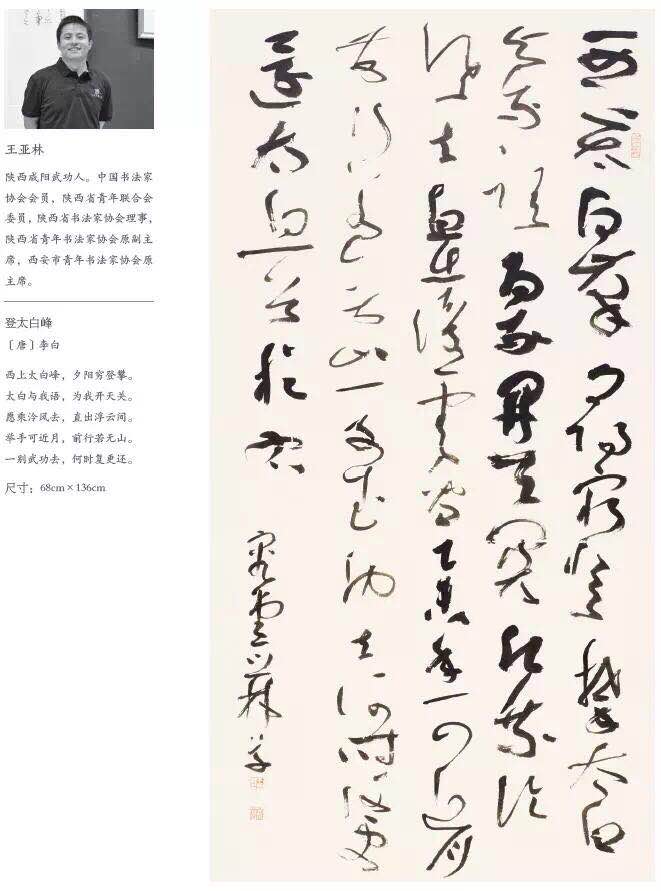 王亚林
陕西咸阳武功人。中国书法家
协会会员，陕西省青年联合会
委员，陕西省书法家协会理事，
陕西省青年书法家协会原副主
席，西安市青年书法家协会原
主席。
登太白峰
〔唐〕李白
西上太白峰，夕阳穷登攀。
太白与我语，为我开天关。
愿乘泠风去，直出浮云间。
举手可近月，前行若无山。
一别武功去，何时复更还。
尺寸：68cm×136cm
西上太白峰夕陽窮登攀太白
与我語為我開天關願乘泠
風去直出浮雲間舉手可近月
前行若无山一別武功去何時復更
還太白
林草